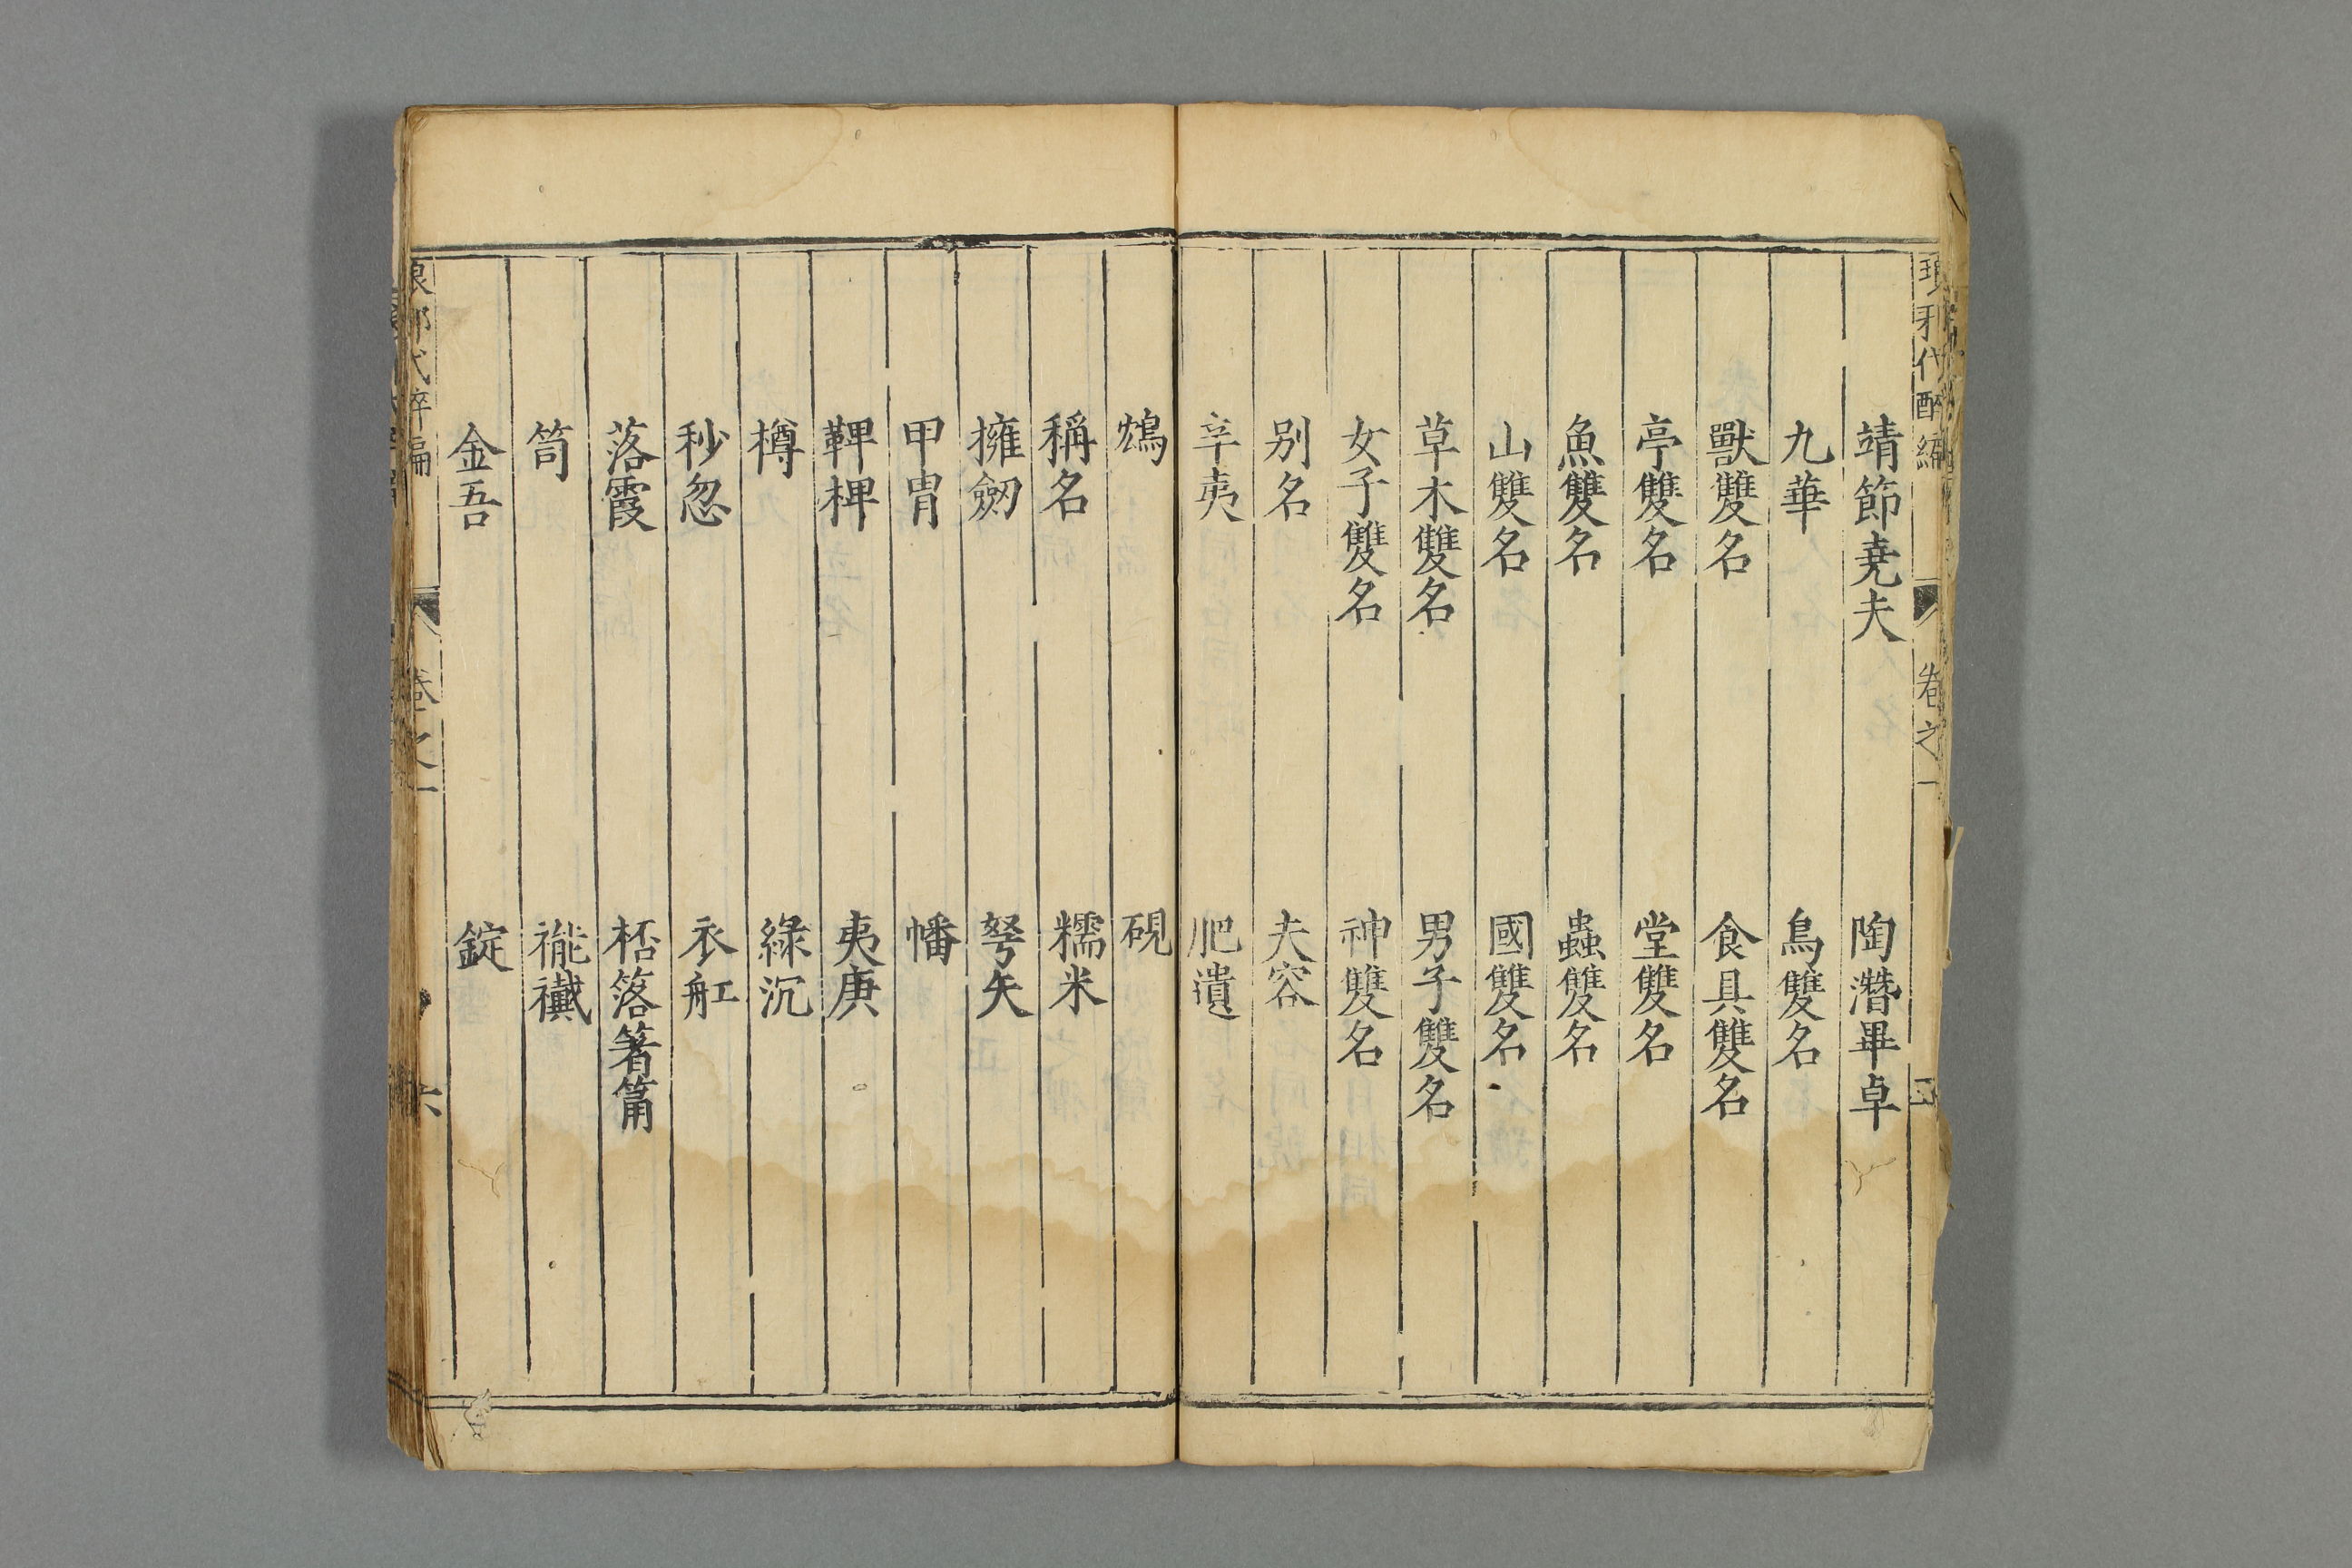 琅邪代醉編 卷之一 五
靖節堯夫 陶潛畢卓
九華 鳥雙名
獸雙名 食具雙名
亭雙名 堂雙名
魚雙名 蟲雙名
山雙名 國雙名
草木雙名 男子雙名
女子雙名 神雙名
别名 夫容
辛夷 肥遺
鴆 硯
稱名 糯米
擁劒 弩矢
甲冑 幡
鞞椑 夷庚
樽 綠沉
秒忽 衣舡
落霞 桮落箸筩
笥 襱襶
金吾 錠
琅邪代醉編 卷之一 六